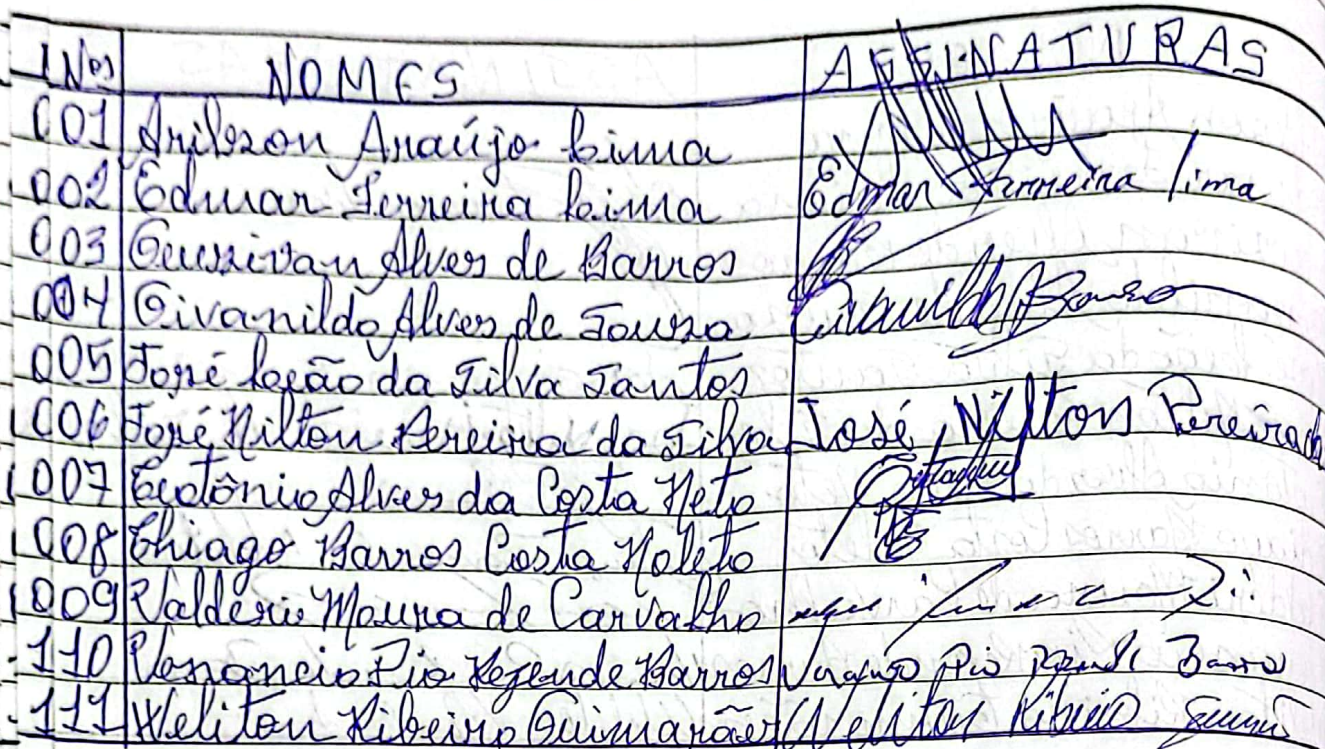 Nos NOMES ASSINATURAS
001 Arilson Araújo Lima
002 Edmar Ferreira Lima Edmar Ferreira lima
003 Alves de Barros
004 Givanildo Alves de Souza Givanildo
005 José Leão da Silva Santos
006 José Nilton Pereira da Silva José Nilton Pereira da
007 Teotônio Alves da Costa Neto
008 Thiago Barros Costa Noleto
009 Valderi Moura de Carvalho
110 Venancio Pio Rezende Barros Pio Barros
111 Weliton Ribeiro Guimarães Weliton Ribeiro